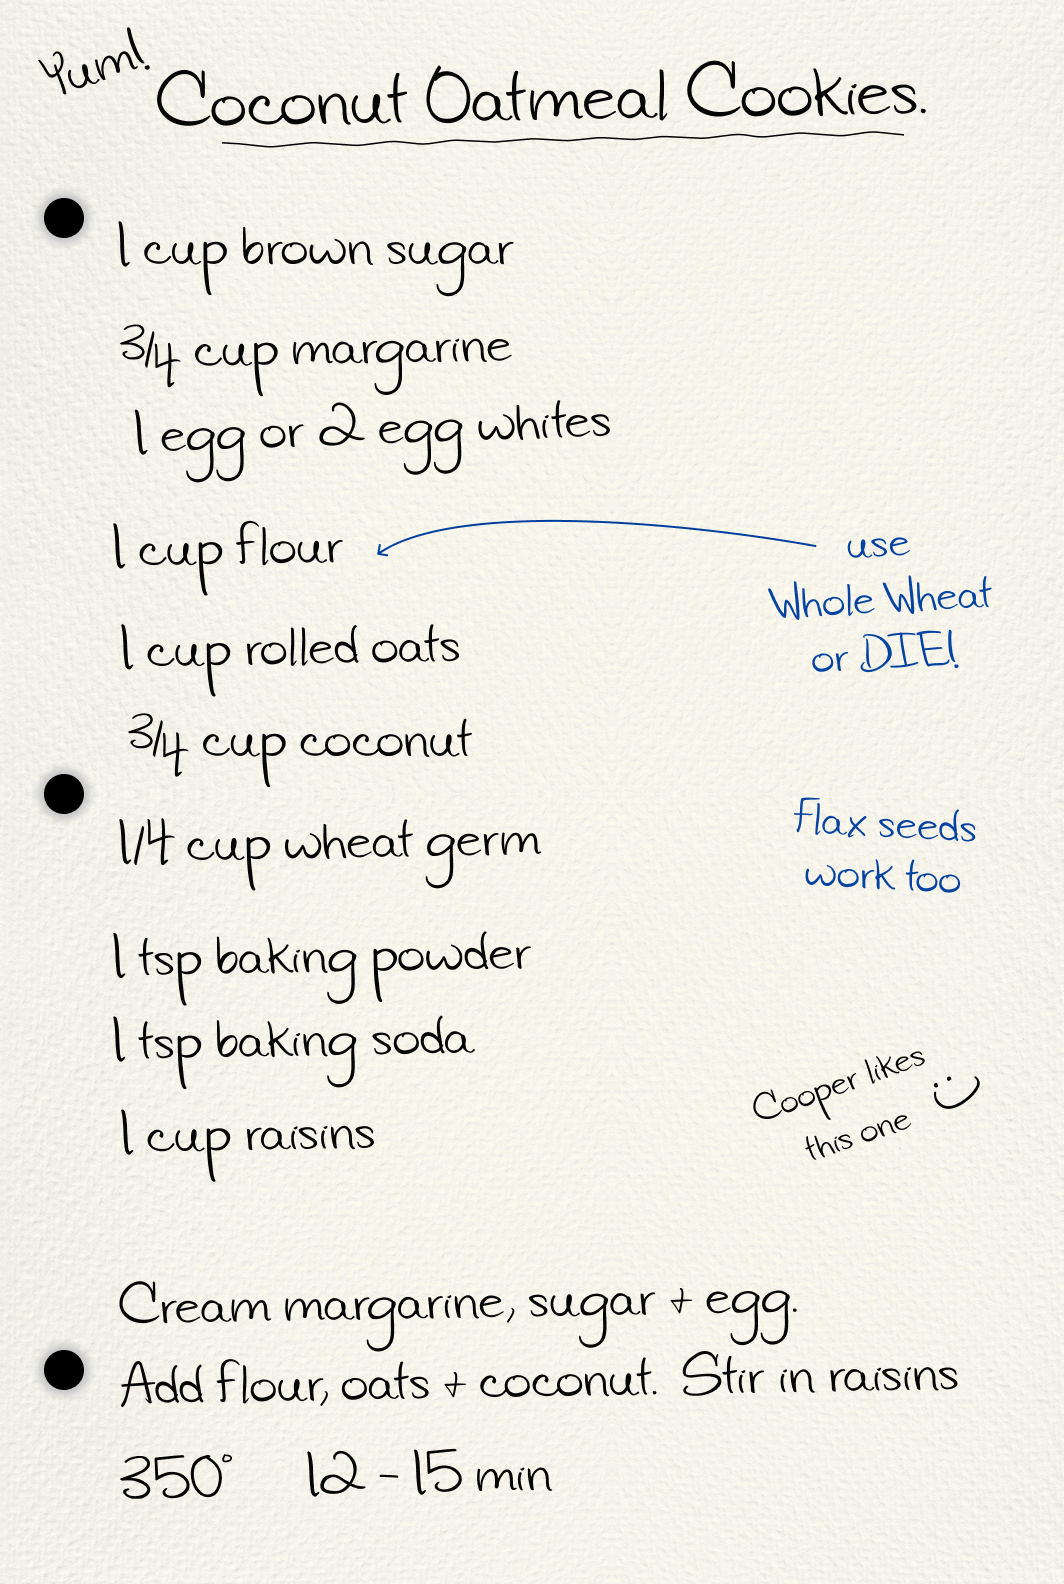 Yum!
Coconut Oatmeal Cookies.
1 cup brown sugar
3/4 cup margarine
1 egg or 2 egg whites
1 cup flour
use
Whole Wheat
or DIE!
1 cup rolled oats
3/4 cup coconut
1/4 cup wheat germ
flax seeds
work too
1 tsp baking powder
1 tsp baking soda
1 cup raisins
Cooper likes
this one
Cream margarine, sugar + egg.
Add flour, oats + coconut. Stir in raisins
350° 12 - 15 min